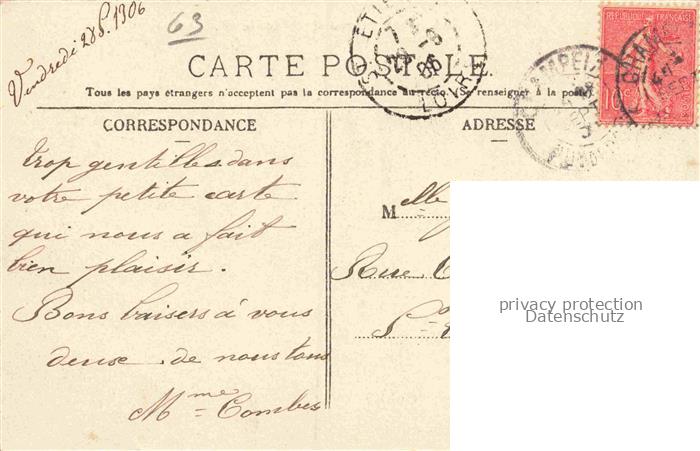 Vendredi 28 S. 1906
63
CARTE POSTALE
Tous les pays étrangers n'acceptent pas la correspondance au recto. Se renseigner à la poste
CORRESPONDANCE
ADRESSE
Trop gentilles dans
votre petite carte
qui nous a fait
bien plaisir.
Bons baisers à vous
deuse. de nous tous
Mme Combes
Melle
Rue
REPUBLIQUE FRANÇAISE
10
LOIRE
privacy protection
Datenschutz